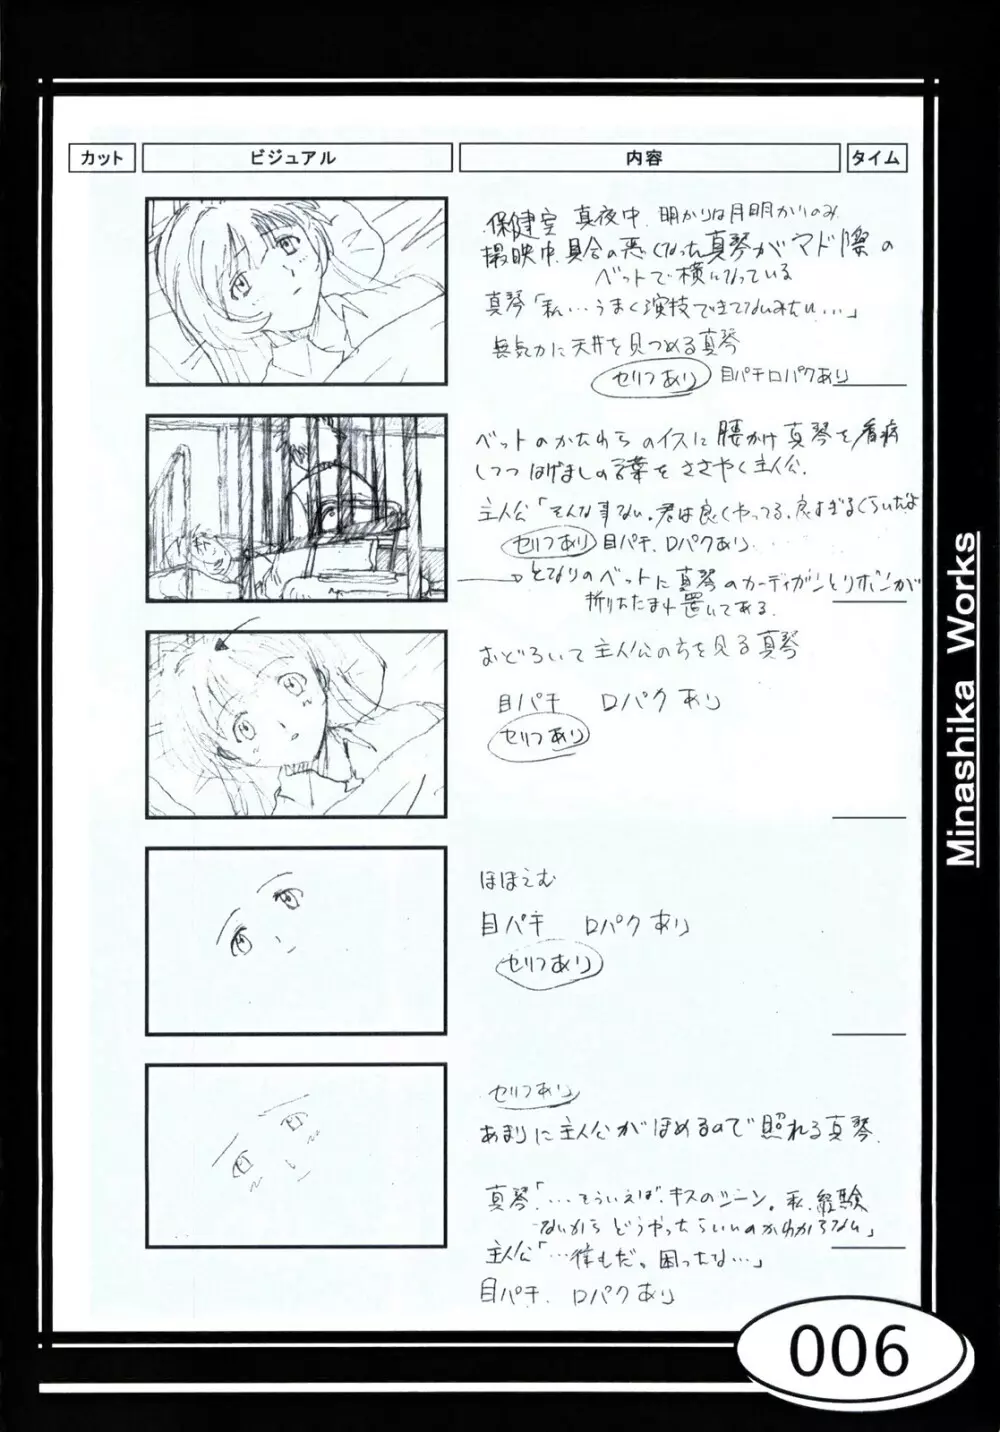 カット ビジュアル 内容 タイム
保健室 真夜中. 明かりは月明かりのみ.
撮映中、具合の悪くなった真琴がマド際の
ベットで横になっている
真琴「私…うまく演技できてないみたい…」
無気力に天井を見つめる真琴
セリフあり 目パチ口パクあり
ベットのかたわらのイスに腰かけ真琴を看病
しつつはげましの言葉をささやく主人公.
主人公「そんな事ない。君は良くやってる、良すぎるくらいだよ
セリフあり 目パチ、口パクあり.
→となりのベットに真琴のカーディガンとリボンが
折りたたまれ置いてある.
おどろいて主人公の方を見る真琴
目パチ 口パクあり
セリフあり
ほほえむ
目パチ 口パクあり
セリフあり
セリフあり
あまりに主人公がほめるので照れる真琴.
真琴「…そういえば、キスのシーン。私、経験
ないからどうやったらいいのかわからない」
主人公「…俺もだ。困ったな…」
目パチ. 口パクあり
Minashika Works
006